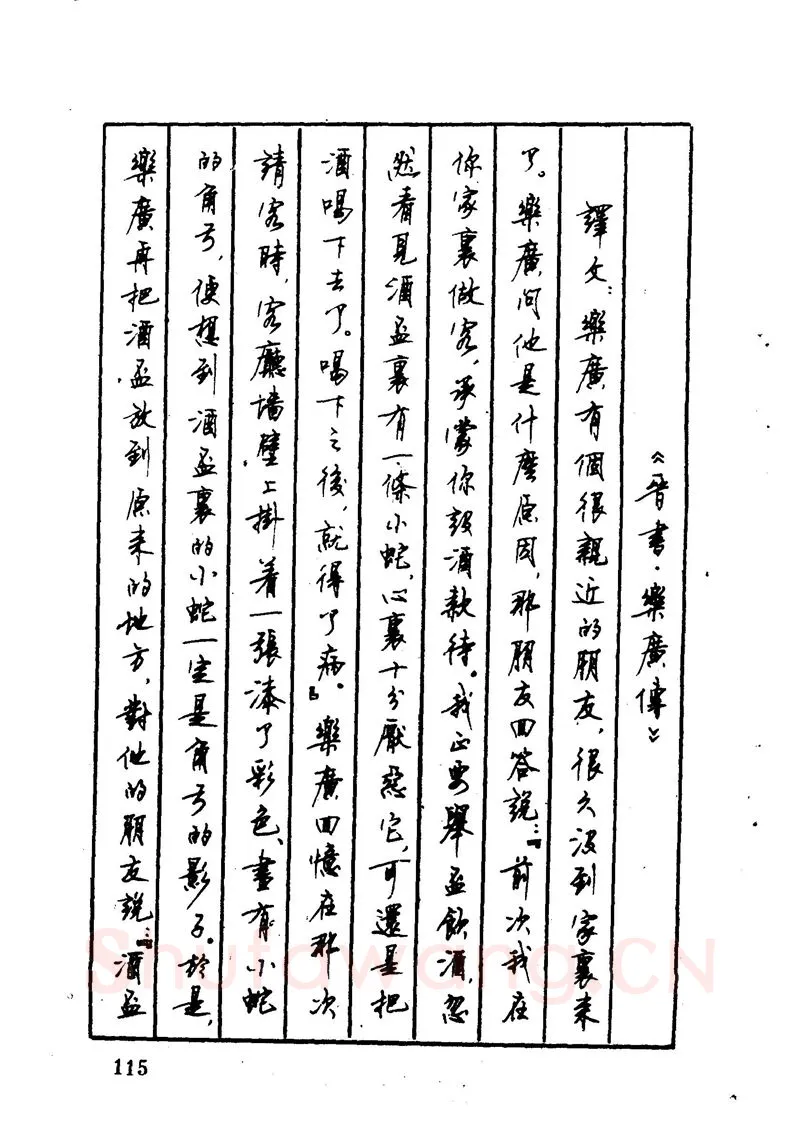 《晉書·樂廣傳》
譯文：樂廣有個很親近的朋友，很久没到家裏来
了。樂廣问他是什麽原因，那朋友回答說：“前次我在
你家裏做客，承蒙你設酒款待。我正要舉盃飲酒，忽
然看見酒盃裏有一條小蛇，心裏十分厭惡它，可還是把
酒喝下去了。喝下之後，就得了病。”樂廣回憶在那次
請客時，客廳墙壁上掛着一張漆了彩色、畫有小蛇
的角弓，便想到酒盃裏的小蛇一定是角弓的影子。於是，
樂廣再把酒盃放到原来的地方，對他的朋友説：“酒盃
115
Shufawang.CN